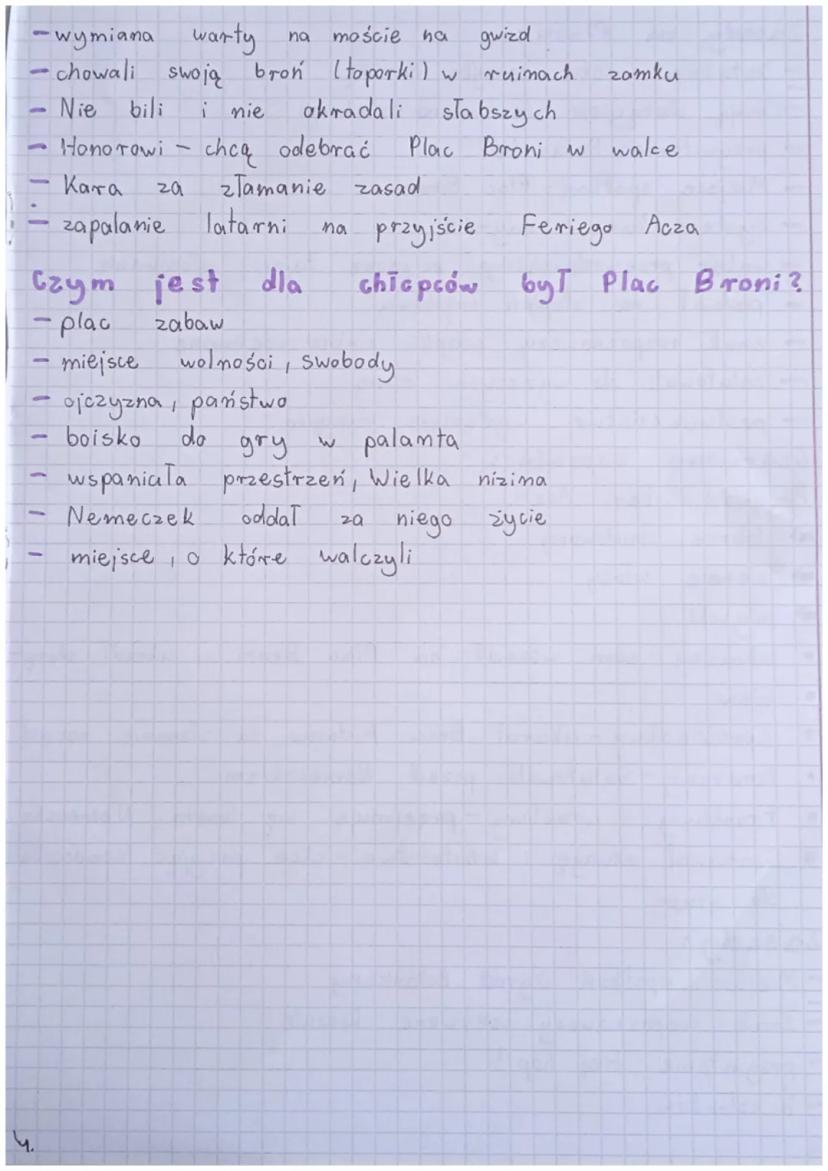 - wymiana warty na moście na gwizd
- chowali swoją broń (toporki) w ruinach zamku
- Nie bili i nie okradali słabszych
- Honorowi - chcą odebrać Plac Broni w walce
- Kara za złamanie zasad
- zapalanie latarni na przyjście Feriego Acza
Czym jest dla chłopców był Plac Broni?
- plac zabaw
- miejsce wolności, swobody
- ojczyzna, państwo
- boisko do gry w palanta
- wspaniała przestrzeń, Wielka nizina
- Nemeczek oddał za niego życie
- miejsce, o które walczyli
4.